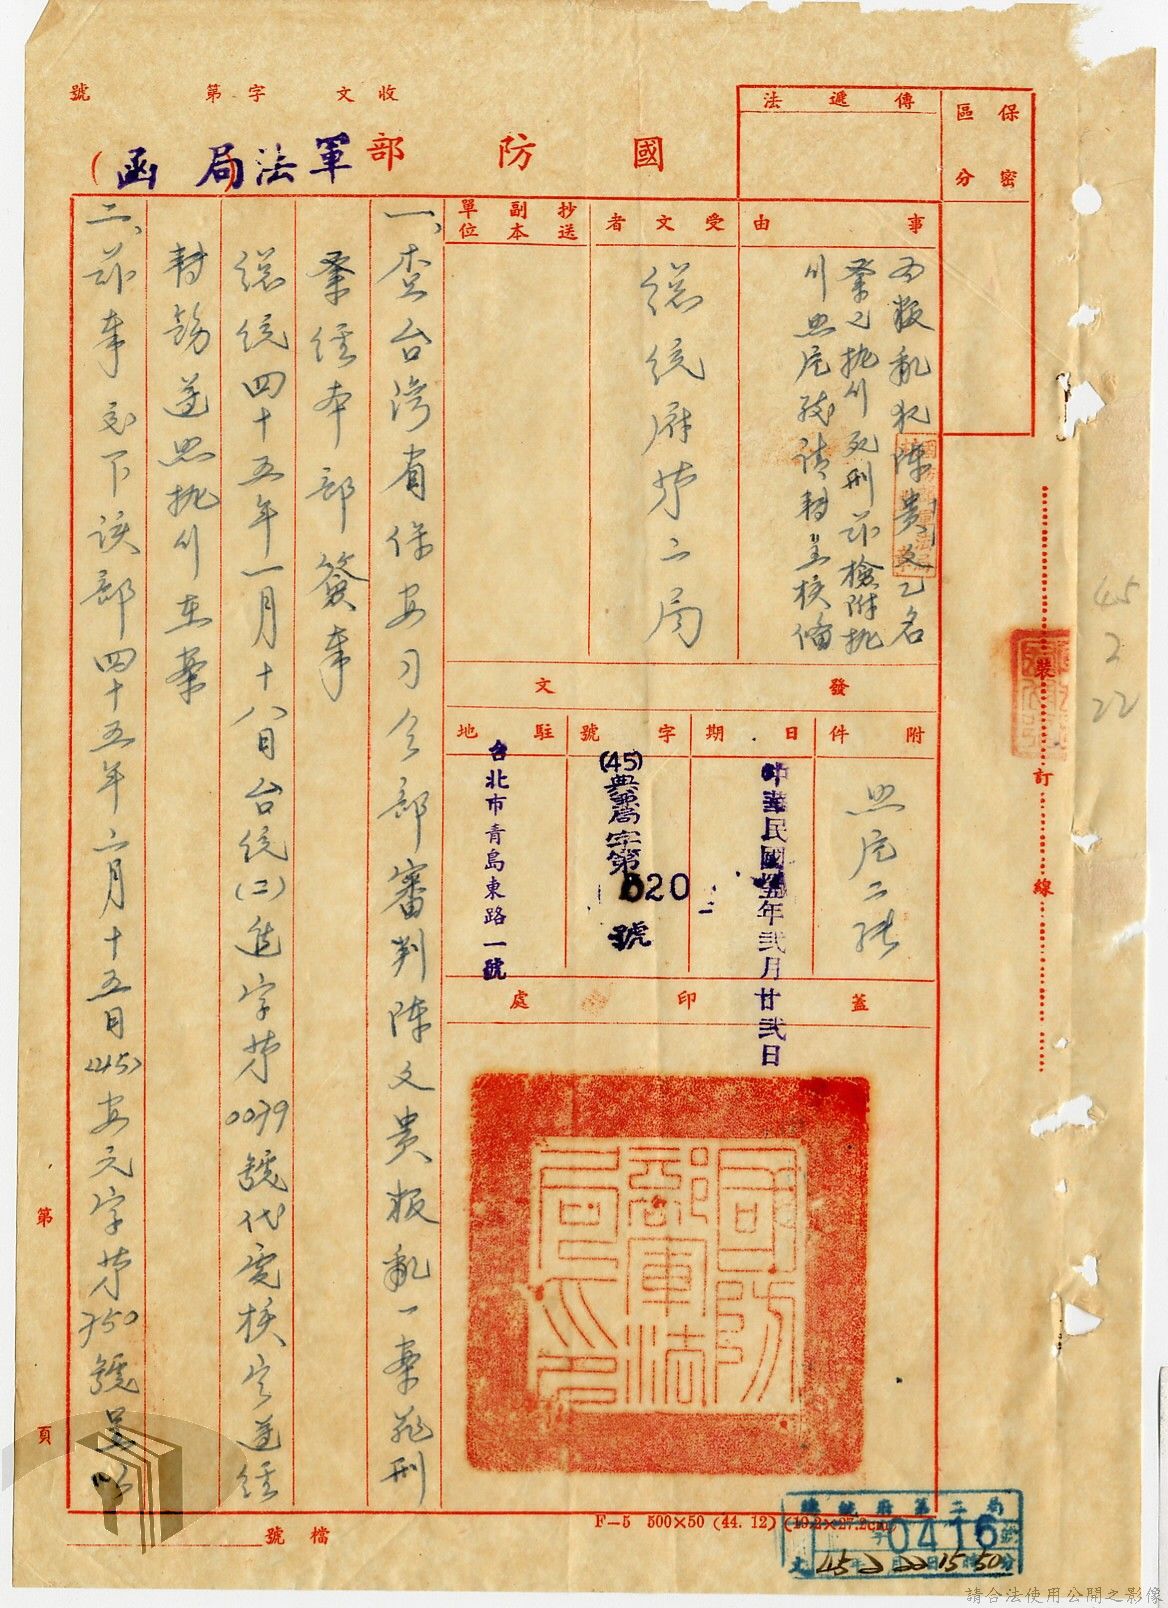 收文　字第　號
保密
區分
傳遞法
國防部軍法局（函）
事由
為叛亂犯陳貴文乙名
業已執行死刑茲檢附執
行照片貳張請轉呈核備
受文者
總統府第二局
抄送
副本
單位
發文
附件
照片二張
日期
中華民國45年貳月廿貳日
字號
(45)典字第
020
號
駐地
台北市青島東路一號
蓋印處
國防部軍法局印
一、查台灣省保安司令部審判陳文貴叛亂一案罪刑
業經本部簽奉
總統四十五年一月十八日台統(二)進字第0079號代電核定並經
轉飭遵照執行在案
二、茲奉交下該部四十五年二月十五日(45)安元字第750號呈以
第　頁
檔號
裝訂線
45
2
22
F-5 500×50 (44. 12) (19.2×27.2cm)
總統府第二局
0416號
45年2月22日15時50分
請合法使用公開之影像